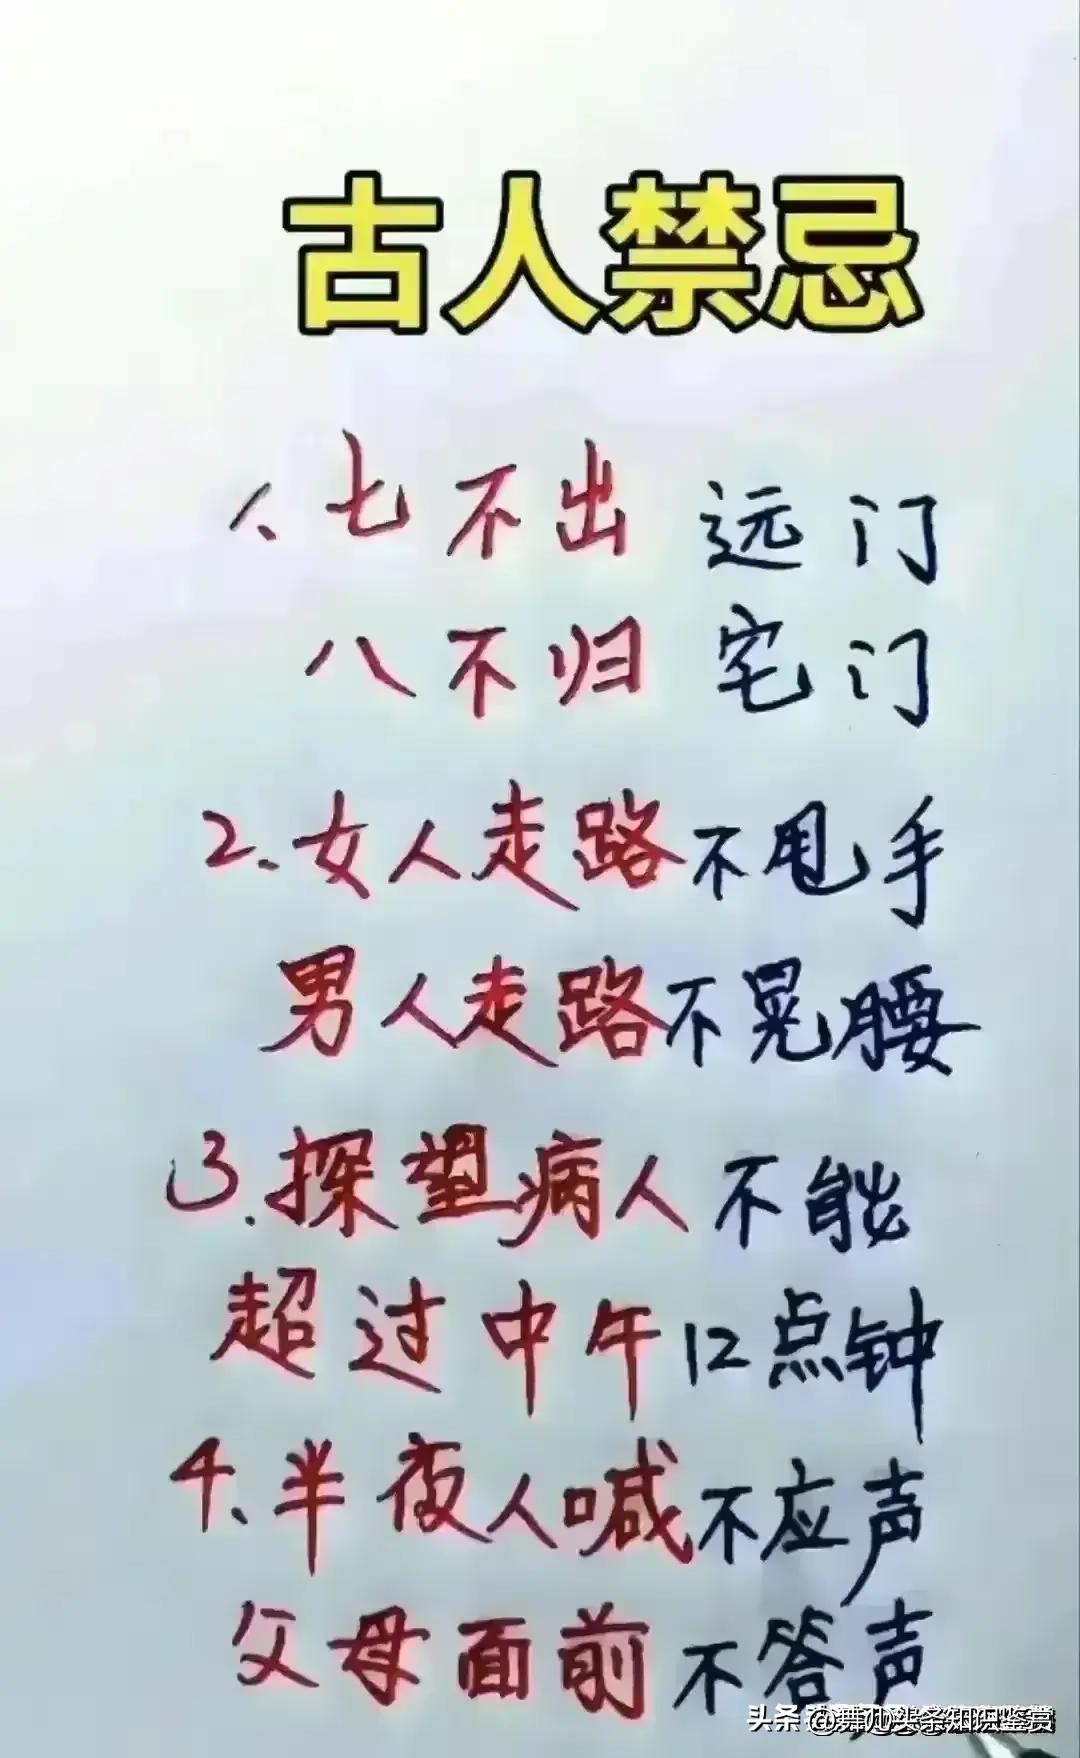 古人禁忌
1、七不出远门
八不归宅门
2、女人走路不甩手
男人走路不晃腰
3.探望病人不能
超过中午12点钟
4、半夜人喊不应声
父母面前不答声
头条 @舞儿头条知识鉴赏